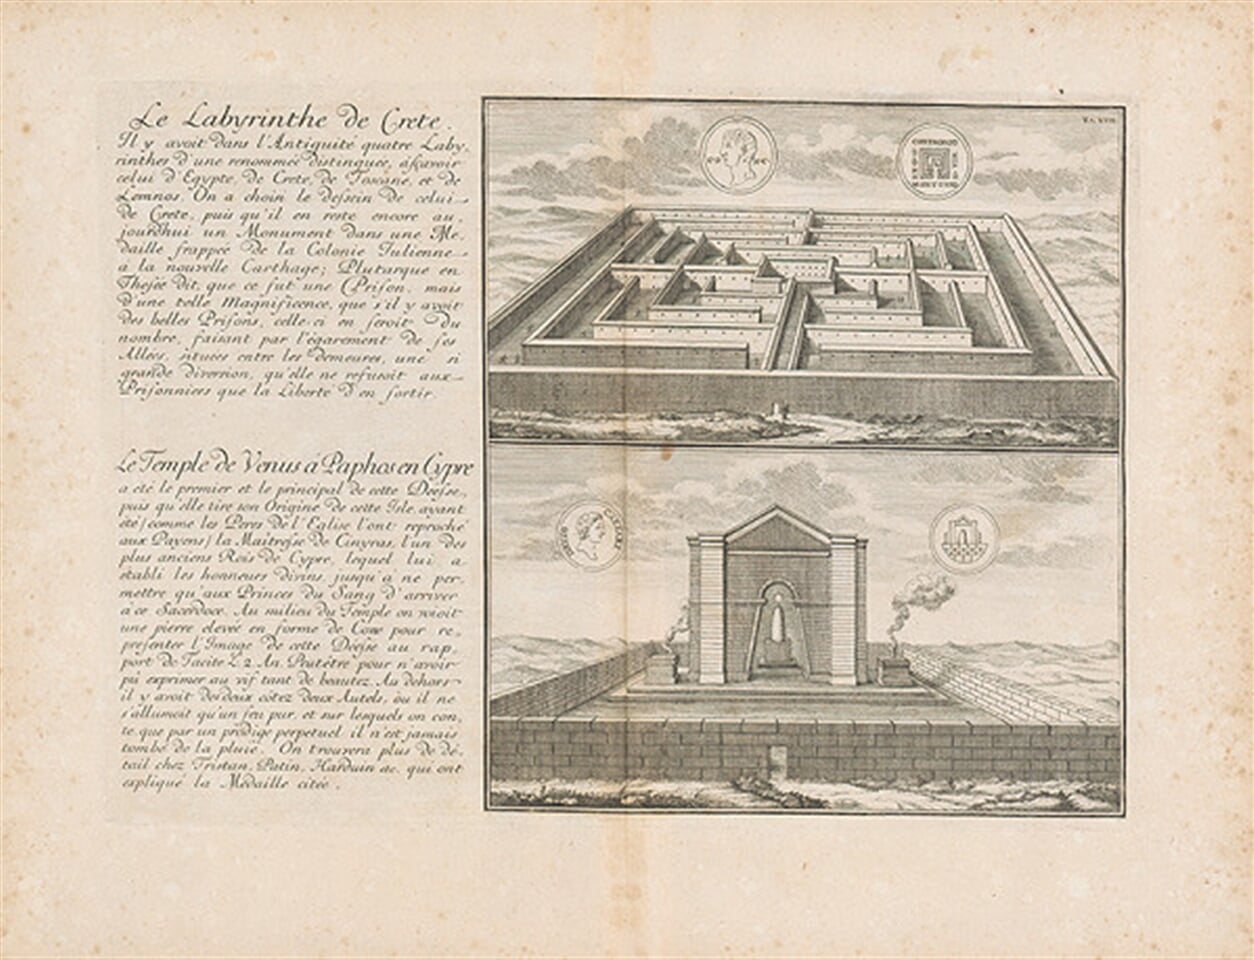 Le Labyrinthe de Crete.
Il y avoit dans l'Antiquité quatre Laby,
rinthes d'une renommée distinguée, àsçavoir
celui d'Egypte, de Crete, de Toscane, et de
Lemnos. On a choisi le dessein de celui
de Crete, puis qu'il en reste encore au,
jourdhui un Monument dans une Me,
daille frappée de la Colonie Iulienne
a la nouvelle Carthage; Plutarque en
Thesée dit, que ce fut une Prison, mais
d'une telle Magnificence, que s'il y avoit
des belles Prisons, celle-ci en seroit du
nombre, faisant par l'égarement de ses
Allées, situées entre les demeures, une si
grande diversion, qu'elle ne refusoit aux
Prisonniers que la Liberté d'en sortir.
Le Temple de Venus à Paphos en Cypre
a eté le premier et le principal de cette Déesse,
puis qu'elle tire son Origine de cette Isle, ayant
été (comme les Peres de l'Eglise l'ont reproché
aux Payens) la Maitresse de Cinyras, l'un des
plus anciens Rois de Cypre, lequel lui a
etabli les honneurs divins, jusqu'a ne per,
mettre qu'aux Princes du Sang d'arriver
à ce Sacerdoce. Au milieu du Temple on voioit
une pierre elevée en forme de Cone pour re,
presenter l'Image de cette Déesse au rap,
port de Tacite L. 2. An. Peutétre pour n'avoir
pû exprimer au vif tant de beautez. Au dehors
il y avoit des deux côtez deux Autels, où il ne
s'allumoit qu'un feu pur, et sur lesquels on con,
te que par un prodige perpetuel il n'est jamais
tombé de la pluie. On trouvera plus de dé,
tail chez Tristan, Patin, Harduin &c. qui ont
expliqué la Médaille citée.